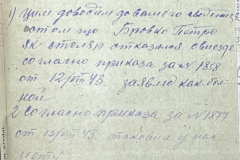 1) Цим доводим до вашего сведения
о том що Бровко Петро
як столяр отказался съезде
согласно приказа за № 1858
от 12/IIІ 43. заявив как боль
ной
2 Согласно приказа за № 1877
от 13/IIІ 43 таковий и